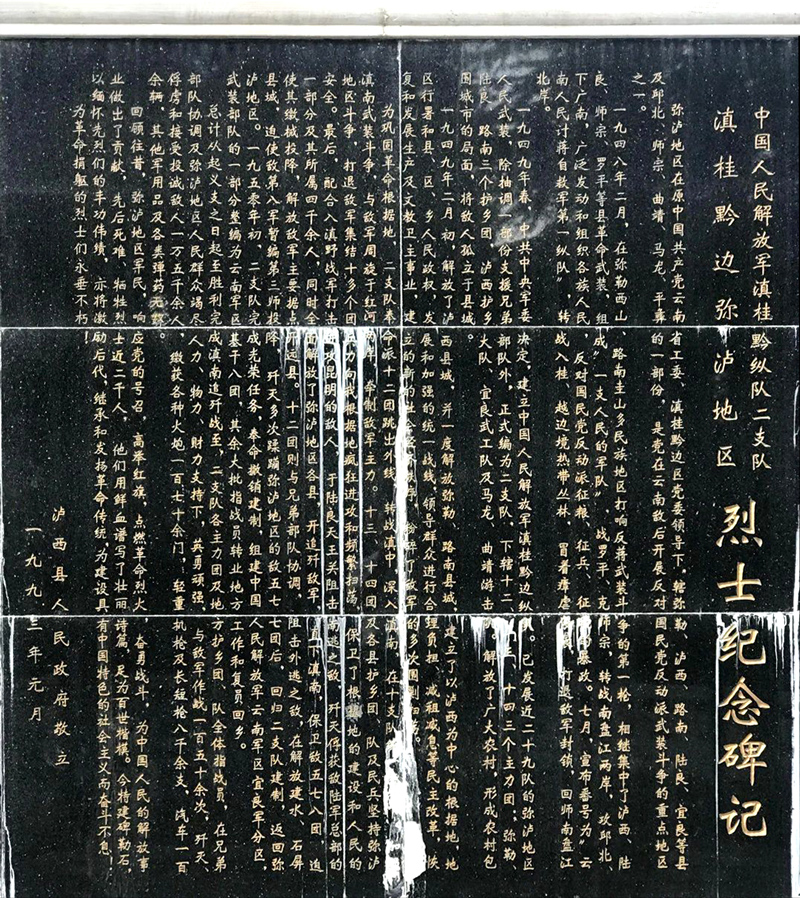 中国人民解放军滇桂黔纵队二支队
滇桂黔边弥泸地区 烈士纪念碑记
弥泸地区在原中国共产党云南省工委、滇桂黔边区党委领导下，辖弥勒、泸西、路南、陆良、宜良等县
及邱北、师宗、曲靖、马龙、平彝的一部份。是党在云南敌后开展反对国民党反动派武装斗争的重点地区
之一。
一九四八年二月，在弥勒西山、路南圭山多民族地区打响反蒋武装斗争的第一枪，相继集中了泸西、陆
良、师宗、罗平等县革命武装，组成“一支人民的军队”，战罗平、克师宗，转战南盘江两岸，攻邱北、
下广南，广泛发动和组织各族人民，反对国民党反动派征粮、征兵、征 暴政。七月，宣布番号为“云
南人民讨蒋自救军第一纵队”，转战入桂、越边境热带丛林，冒着瘴 打退敌军封锁，回师南盘江
北岸。
一九四九年春，中共中央军委决定，建立中国人民解放军滇桂黔边纵 已发展近二十九队的弥泸地区
人民武装，除抽调一部份支援兄弟部队外，正式编为二支队，下辖十二、 、十四三个主力团；弥勒、
陆良、路南三个护乡团，泸西护乡大队，宜良武工队及马龙、曲靖游击 解放了广大农村，形成农村包
围城市的局面，将敌人孤立于县城。
一九四九年二月初，解放了泸西县城，并一度解放弥勒、路南县城。建立了以泸西为中心的根据地，地
区行署和县、区、乡人民政权，发展和加强的统一战线，领导群众进行合理负担、减租减息等民主改革，恢
复和发展生产及文教卫主事业，建立的新的社 了敌军的多次围剿和
为巩固革命根据地，二支队奉命派十二团跳出外线，转战滇中，深入滇南，在十支队
滇南武装斗争，与敌军周旋于红河两岸，牵制敌军主力。十三、十四团及各县护乡团、队及民兵坚持弥泸
地区斗争，打退敌军集结十多个团 力向我根据地疯狂进攻和频繁扫荡。保卫了根据地的建设和人民的
安全。最后，配合入滇野战军打击进攻昆明的敌人，于陆良天王关阻击南逃之敌，歼灭俘获敌陆军总部的
一部分及其所属四千余人，同时全面解放了弥泸地区各县，开追歼敌军，直 滇南，保卫敌五七八团，迫
使其缴械投降，解放敌军主要据点开远县。十二团则与兄弟部队协调，阻击外逃之敌，在解放建水、石屏
县城，迫使敌第八军暂编第三师投降，歼灭多次蹂躏弥泸地区的敌五七七团后，回归二支队建制，返回弥
泸地区。一九五〇年初，二支队完成光荣任务，奉命撤销建制，组建中国人民解放军云南军区宜良军分区，
武装部队的一部分整编为云南军区基干八团，其余大批指战员转业地方工作和复员回乡。
总计从起义支之日起至胜利完成滇南追歼战至，二支队各主力团及地方护乡团、队全体指战员，在兄弟
部队协调及弥泸地区人民群众竭尽人力、物力、财力支持下，英勇顽强，与敌军作战一百五十余次，歼灭、
俘虏和接受投诚敌人一万五千余人，缴获各种火炮一百七十余门，轻重机枪及长短枪八千余支，汽车一百
余辆，其他军用品及各类弹药无数。
回顾往昔，弥泸地区军民，响应党的号召，高举红旗，点燃革命烈火，奋勇战斗，为中国人民的解放事
业做出了贡献，先后死难、牺牲烈士近二千人，他们用鲜血谱写了壮丽诗篇，足为百世楷模。今特建碑勒石，
以缅怀先烈们的丰功伟绩，亦将激励后代，继承和发扬革命传统，为建设具有中国特色的社会主义而奋斗不息，
为革命捐躯的烈士们永垂不朽！
泸西县人民政府敬立
一九九三年元月